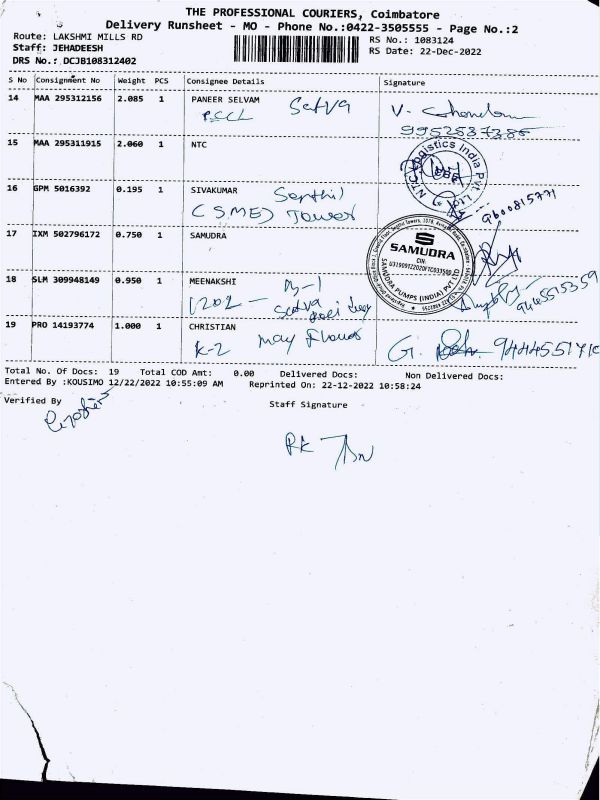 THE PROFESSIONAL COURIERS, Coimbatore
Delivery Runsheet - MO - Phone No.:0422-3505555 - Page No.:2
Route: LAKSHMI MILLS RD
RS No.: 1083124
Staff: JEHADEESH
RS Date: 22-Dec-2022
DRS No.: DCJB108312402
S No Consignment No Weight PCS Consignee Details Signature
14 MAA 295312156 2.085 1 PANEER SELVAM
15 MAA 295311915 2.060 1 NTC
NTC Logistics India Pvt. Ltd.
16 GPM 5016392 0.195 1 SIVAKUMAR Senthil
CSMED Tower
9600815771
17 IXM 502796172 0.750 1 SAMUDRA
S
SAMUDRA
CIN:
SAMUDRA PUMPS (INDIA) PVT LTD
18 SLM 309948149 0.950 1 MEENAKSHI
1202 -
19 PRO 14193774 1.000 1 CHRISTIAN
K-2 May Flower
G.
Total No. Of Docs: 19 Total COD Amt: 0.00 Delivered Docs: Non Delivered Docs:
Entered By :KOUSIMO 12/22/2022 10:55:09 AM Reprinted On: 22-12-2022 10:58:24
Verified By
Staff Signature